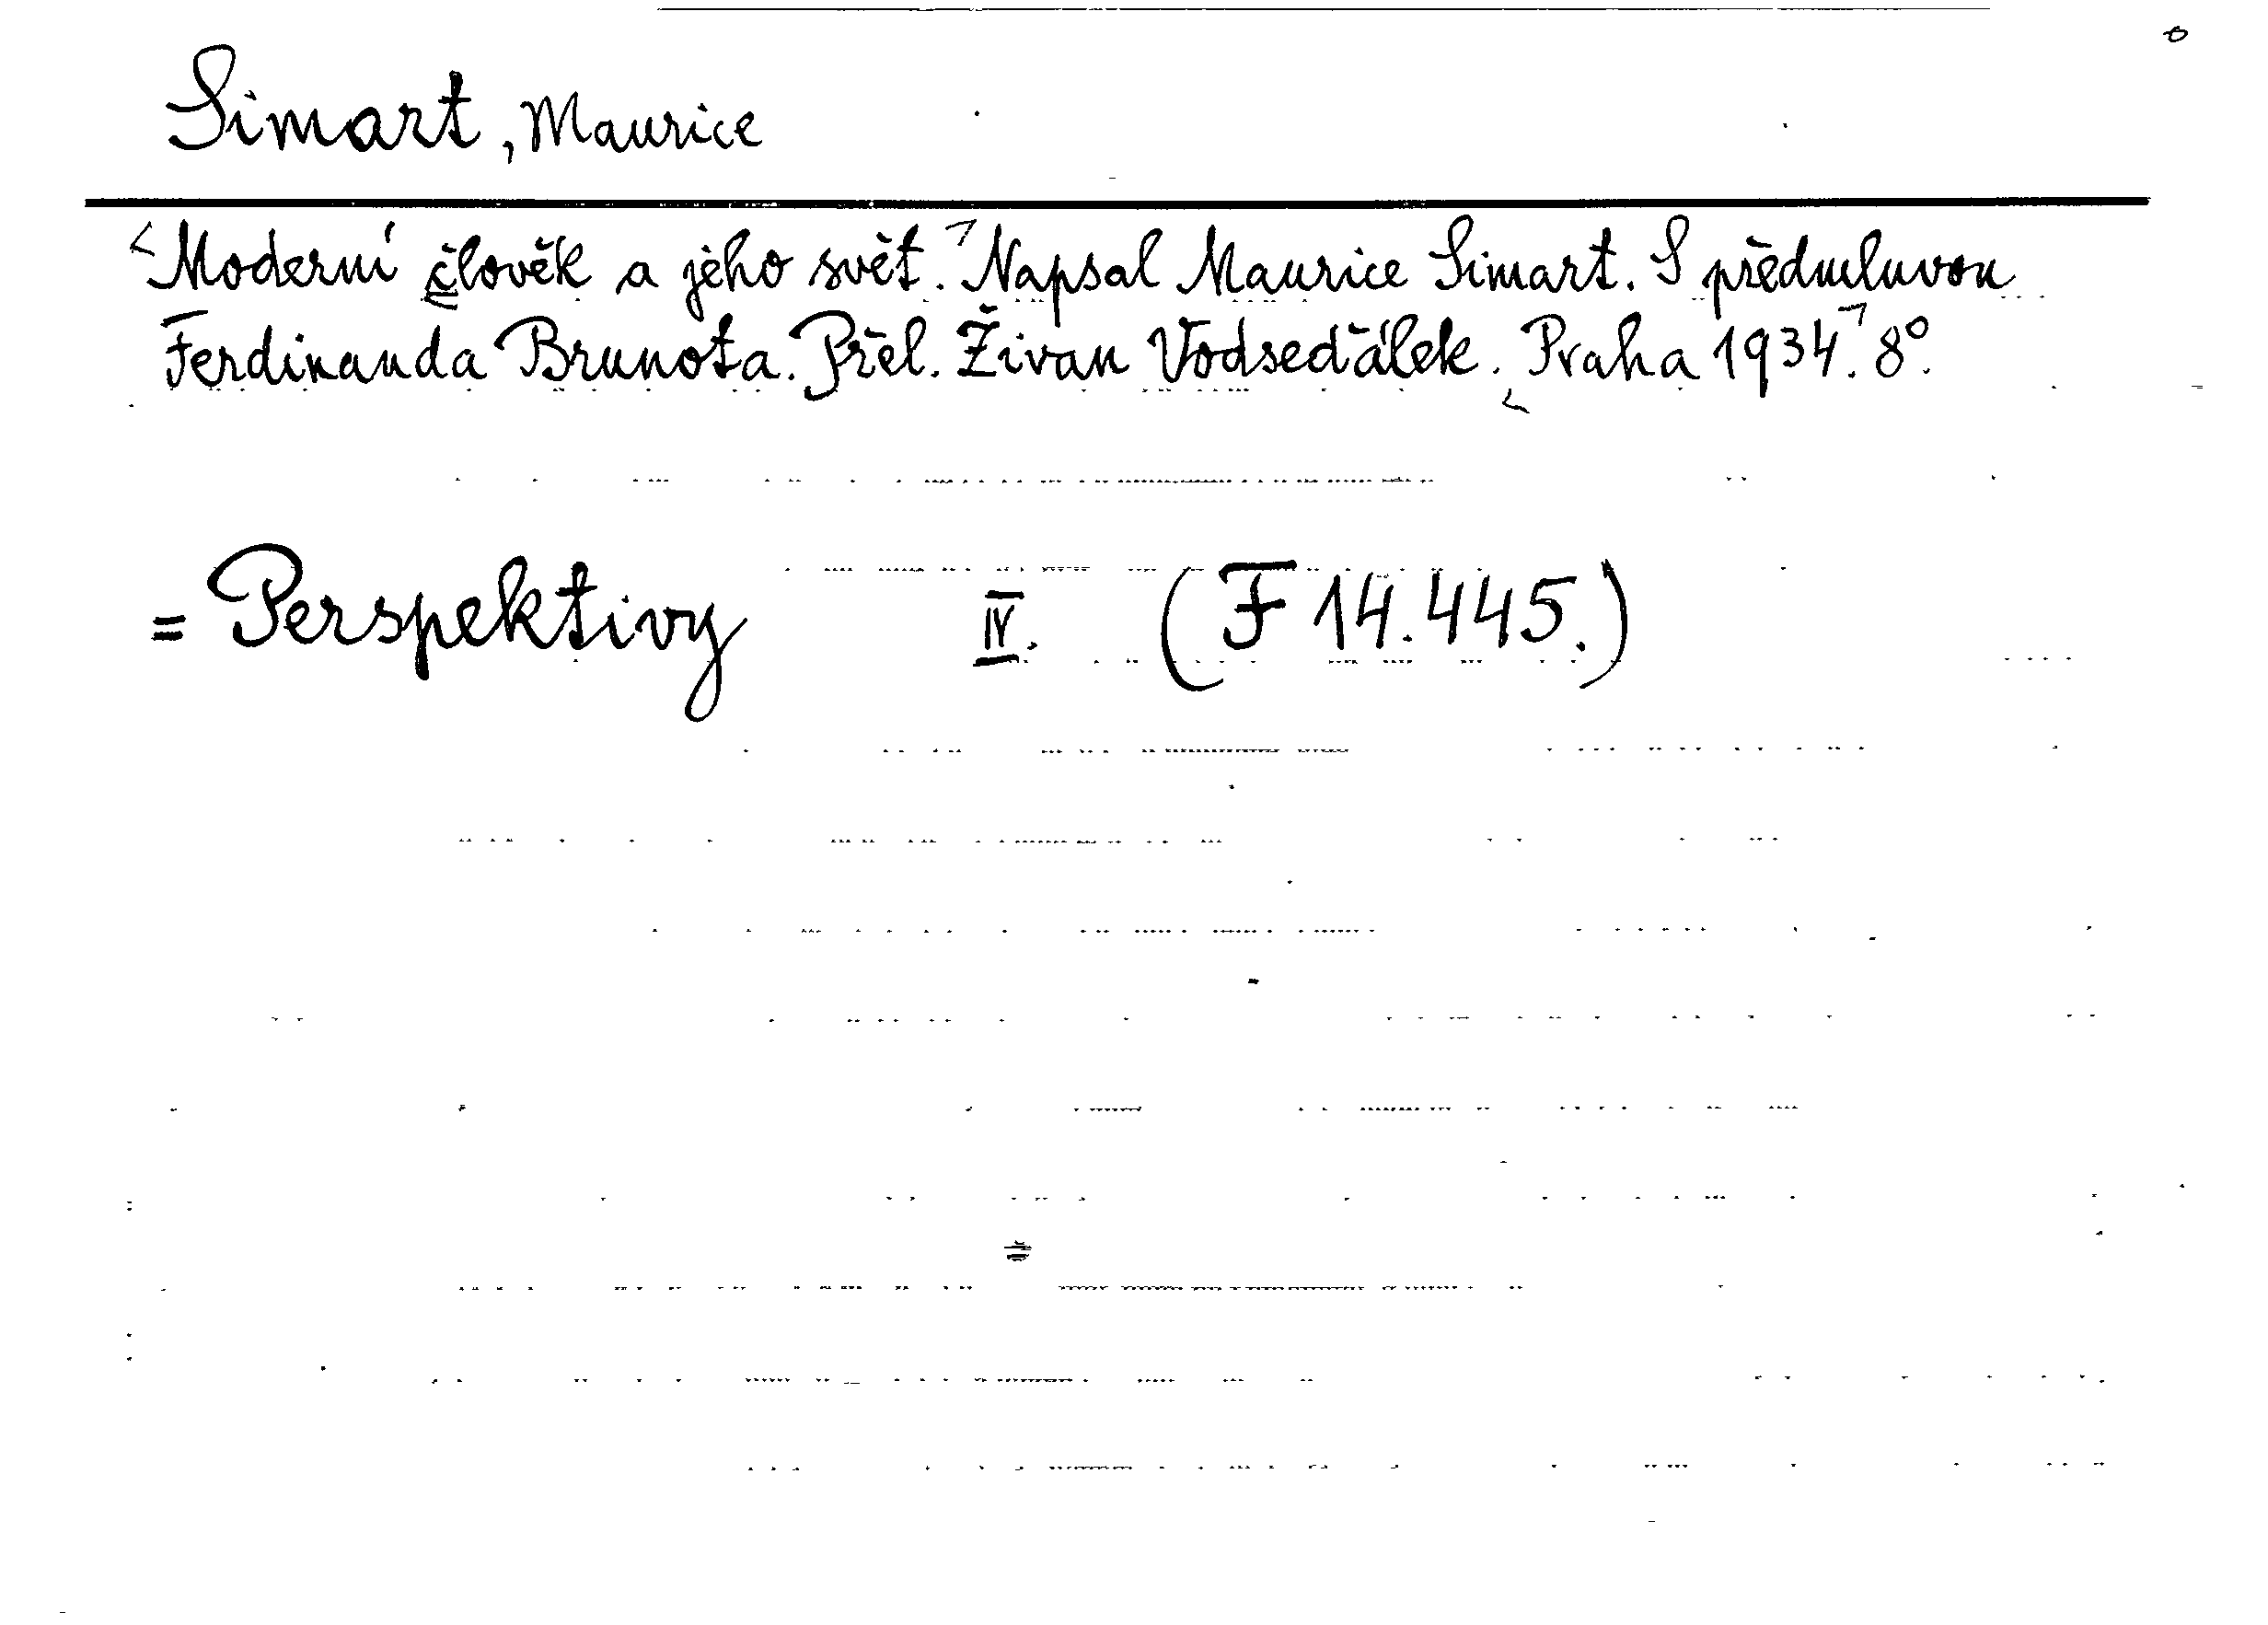 Simart, Maurice
Moderní člověk a jeho svět. Napsal Maurice Simart. S předmluvou
Ferdinanda Brunota. Přel. Živan Vodseďálek. Praha 1934. 8°.
= Perspektivy IV. (F 14.445.)